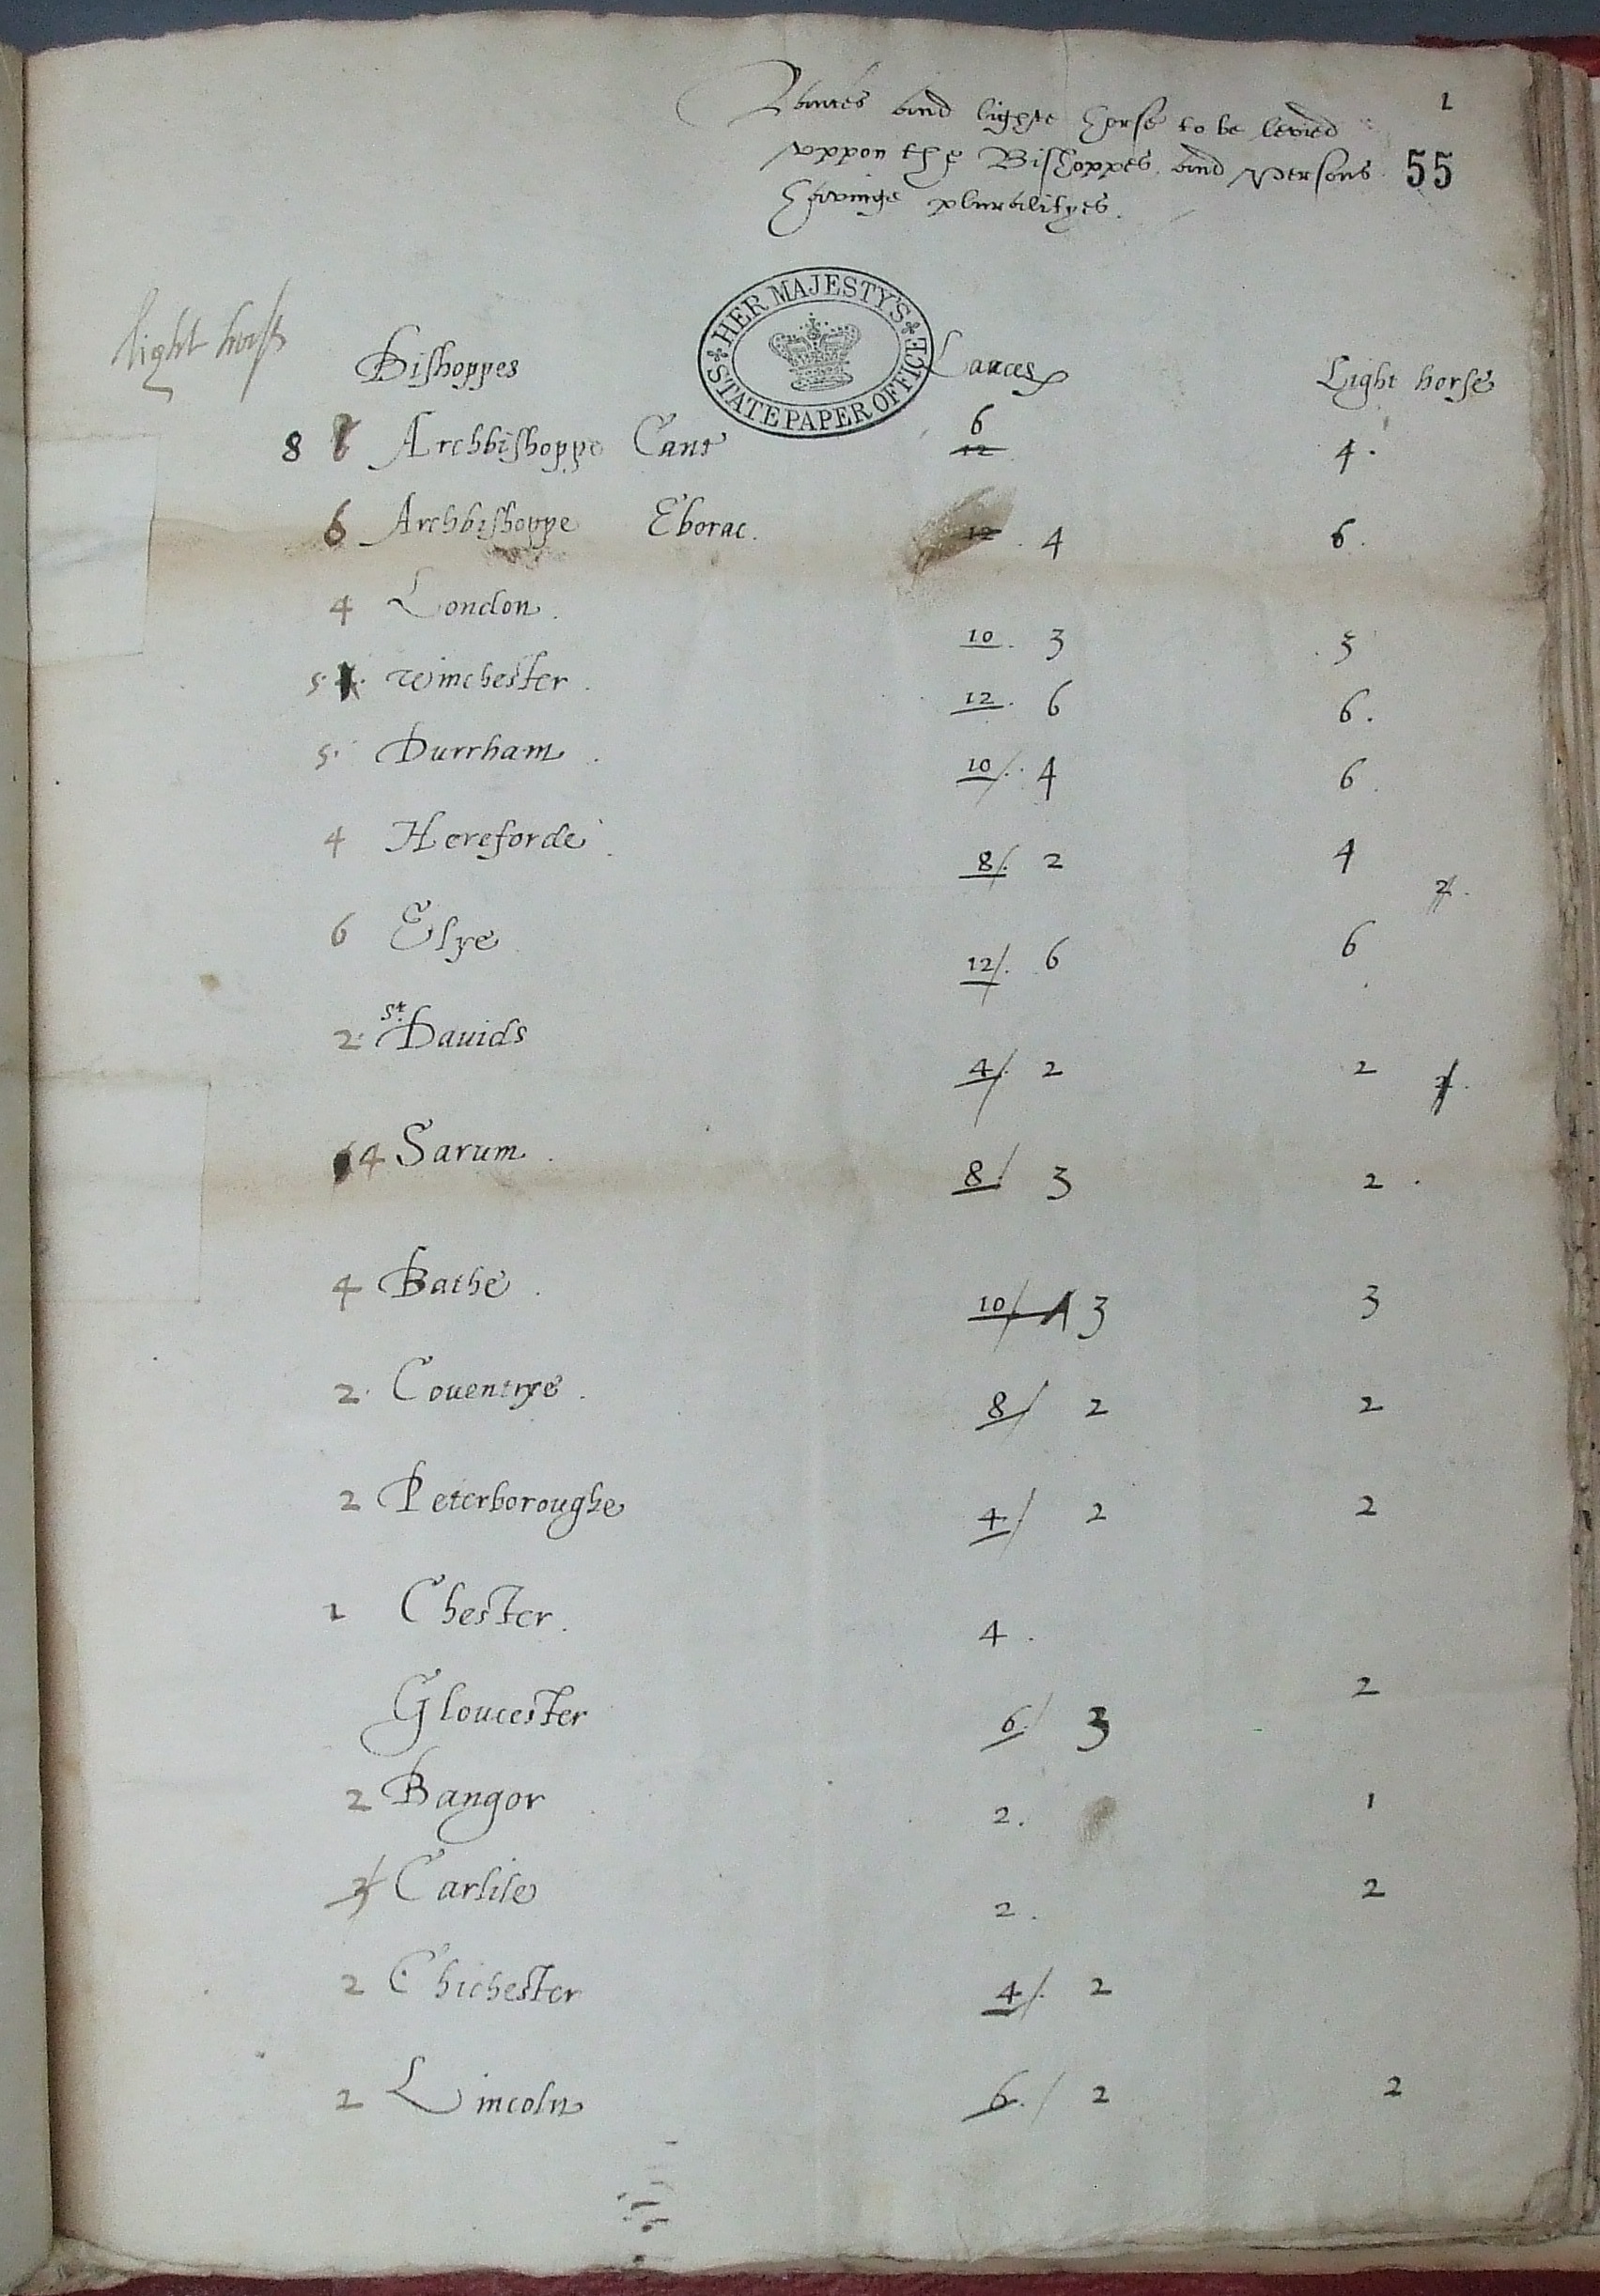 1
Launces and lighte horse to be levied
vppon the Bishoppes and persons 55
havinge pluralityes.
HER MAJESTY'S STATE PAPER OFFICE
light horse Bishoppes Launces Light horse
8 Archbishoppe Cant 12 6 4.
6 Archbishoppe Eborac. 12. 4 6.
4 London. 10. 3 3
5. Winchester. 12. 6 6.
5. Durrham. 10/. 4 6.
4 Hereforde. 8/. 2 4 2.
6 Elye 12/. 6 6
2. St. Dauids 4/. 2 2
4 Sarum. 8/ 3 2.
4 Bathe. 10/. 3 3
2. Couentrye. 8/ 2 2
2 Peterboroughe 4/ 2 2
1 Chester. 4.
Gloucester 6/ 3 2
2 Bangor 2. 1
Carlile 2. 2
2 Chichester 4/. 2
2 Lincoln 6./ 2 2